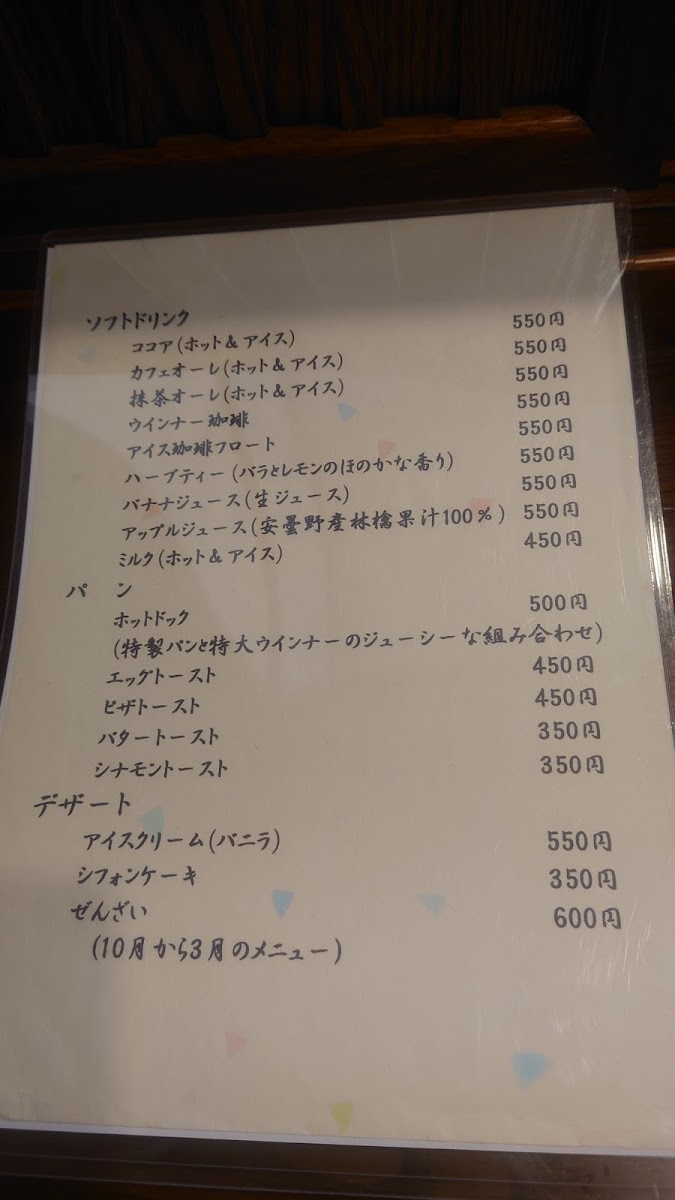 ソフトドリンク
ココア(ホット&アイス) 550円
カフェオーレ(ホット&アイス) 550円
抹茶オーレ(ホット&アイス) 550円
ウインナー珈琲 550円
アイス珈琲フロート 550円
ハーブティー(バラとレモンのほのかな香り) 550円
バナナジュース(生ジュース) 550円
アップルジュース(安曇野産林檎果汁100%) 550円
ミルク(ホット&アイス) 450円
パン
ホットドック 500円
(特製パンと特大ウインナーのジューシーな組み合わせ)
エッグトースト 450円
ピザトースト 450円
バタートースト 350円
シナモントースト 350円
デザート
アイスクリーム(バニラ) 550円
シフォンケーキ 350円
ぜんざい 600円
(10月から3月のメニュー)